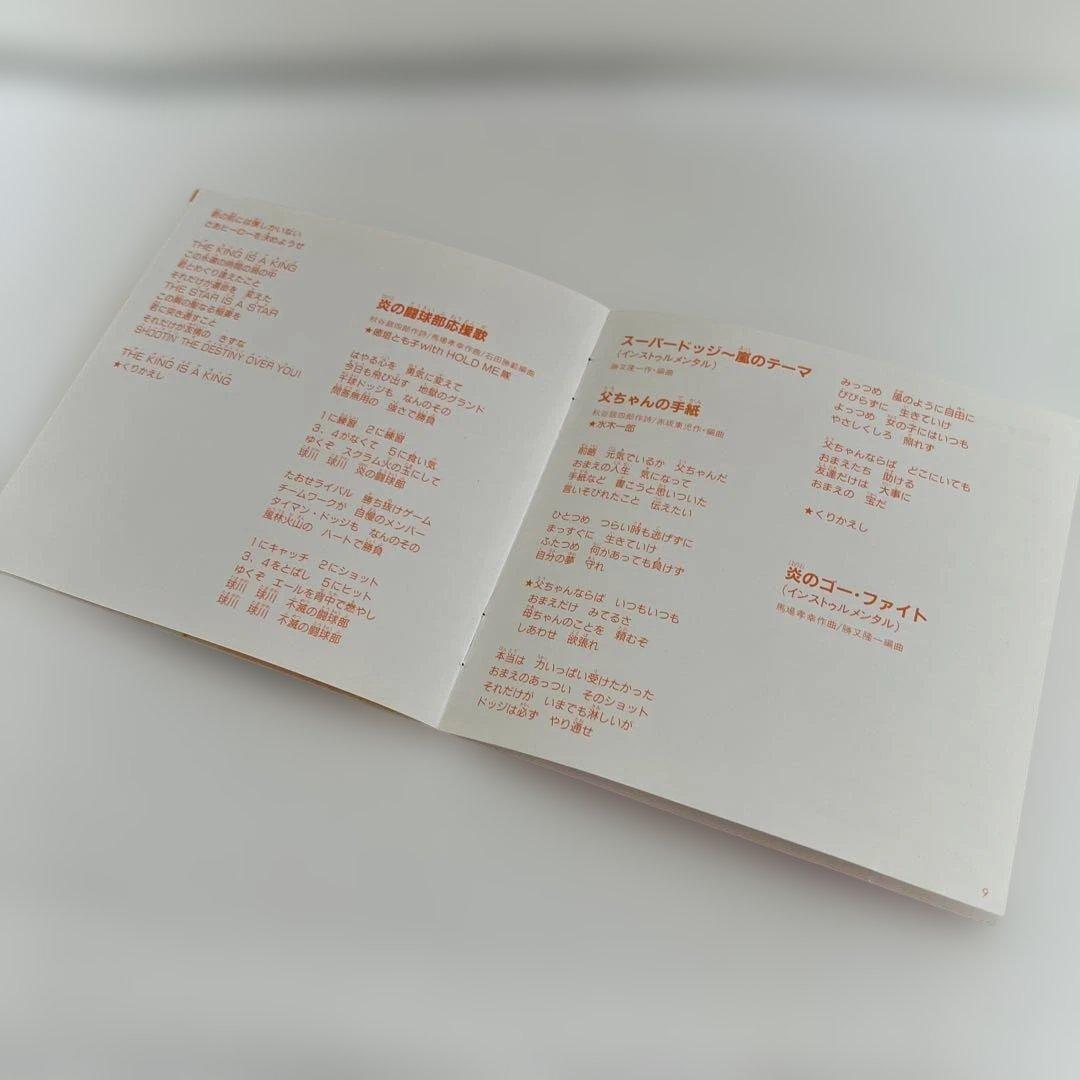 君の前には僕しかいない
さあヒーローを決めようぜ
THE KING IS A KING
この永遠の時間の扉の中
君とめぐり逢えたこと
それだけが運命を 変えた
THE STAR IS A STAR
この胸の聖なる稲妻を
君に突き通すこと
それだけが友情の きずな
SHOOTIN' THE DESTINY OVER YOU!
THE KING IS A KING
★くりかえし
炎の闘球部応援歌
秋谷銀四郎作詩/馬場孝幸作曲/石田勝範編曲
★徳垣とも子 with HOLD ME隊
はやる心を 勇気に変えて
今日も飛び出す 地獄のグランド
千球ドッジも なんのその
問答無用の 強さで勝負
1に練習 2に練習
3、4がなくて 5に食い気
ゆくぞ スクラム火の玉にして
球川 球川 炎の闘球部
たおせライバル 勝ち抜けゲーム
チームワークが 自慢のメンバー
タイマン・ドッジも なんのその
風林火山の ハートで勝負
1にキャッチ 2にショット
3、4をとばし 5にヒット
ゆくぞ エールを背中で燃やし
球川 球川 不滅の闘球部
球川 球川 不滅の闘球部
スーパードッジ〜嵐のテーマ
(インストゥルメンタル)
勝又隆一作・編曲
父ちゃんの手紙
秋谷銀四郎作詩/赤坂東児作・編曲
★水木一郎
前略 元気でいるか 父ちゃんだ
おまえの人生 気になって
手紙など 書こうと思いついた
言いそびれたこと 伝えたい
ひとつめ つらい時も逃げずに
まっすぐに 生きていけ
ふたつめ 何があっても負けず
自分の夢 守れ
★父ちゃんならば いつもいつも
おまえだけ みてるさ
母ちゃんのことを 頼むぞ
しあわせ 欲張れ
本当は 力いっぱい受けたかった
おまえのあっつい そのショット
それだけが いまでも淋しいが
ドッジは必ず やり通せ
みっつめ 風のように自由に
びびらずに 生きていけ
よっつめ 女の子にはいつも
やさしくしろ 照れず
父ちゃんならば どこにいても
おまえたち 助ける
友達だけは 大事に
おまえの 宝だ
★くりかえし
炎のゴー・ファイト
(インストゥルメンタル)
馬場孝幸作曲/勝又隆一編曲
9